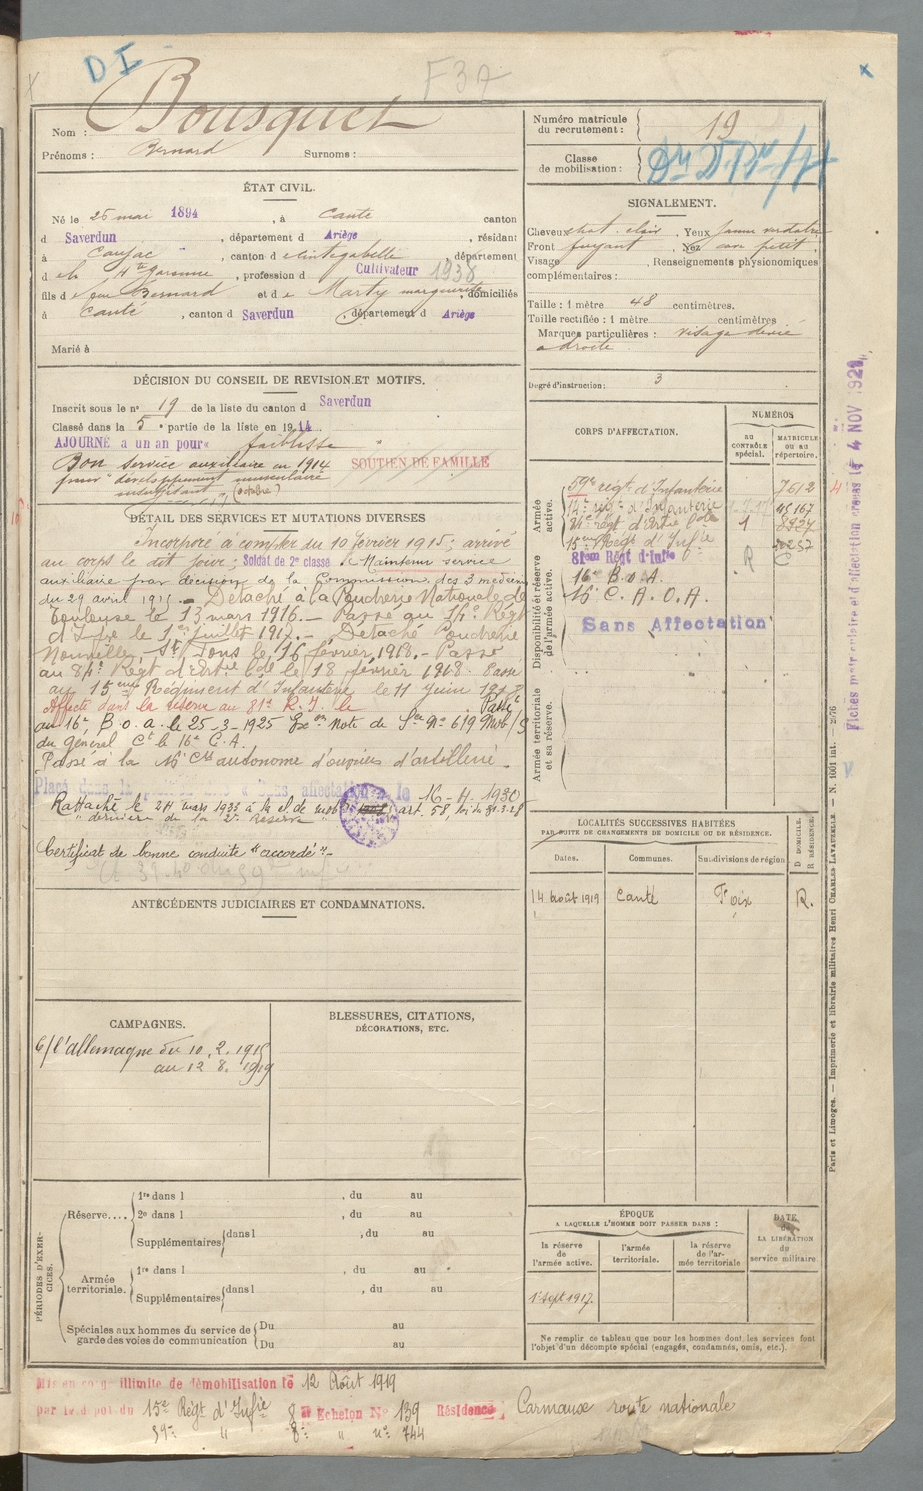 D I
F 37
Nom : Bousquet
Prénoms : Bernard Surnoms :
Numéro matricule
du recrutement : 19
Classe
de mobilisation :
ÉTAT CIVIL.
Né le 25 mai 1894, à Canté canton
d Saverdun, département d Ariège, résidant
à Caujac, canton d e Cintegabelle, département
d e la Hte Garonne, profession d Cultivateur 1938
fils d e Bernard et d e Marty Marguerite, domiciliés
à Canté, canton d Saverdun, département d Ariège
Marié à
SIGNALEMENT.
Cheveux chat. clair, Yeux jaune verdatre
Front fuyant, Nez cave petit.
Visage, Renseignements physionomiques
complémentaires :
Taille : 1 mètre 48 centimètres.
Taille rectifiée : 1 mètre centimètres
Marques particulières : visage dévié
à droite
Degré d'instruction : 3
DÉCISION DU CONSEIL DE REVISION ET MOTIFS.
Inscrit sous le n° 19 de la liste du canton d Saverdun
Classé dans la 5e partie de la liste en 1914
AJOURNÉ à un an pour « faiblesse »
Bon service auxiliaire en 1914
pour "développement musculaire
insuffisant" (octobre)
SOUTIEN DE FAMILLE
DÉTAIL DES SERVICES ET MUTATIONS DIVERSES
Incorporé à compter du 10 février 1915; arrivé
au corps le dit jour; Soldat de 2e classe Maintenu service
auxiliaire par décision de la Commission des 3 médecins
du 29 avril 1915. - Détaché à la Poudrerie Nationale de
Toulouse le 13 mars 1916. - Passé au 14e Régt
d'Infie le 1er juillet 1917. - Détaché Poudrerie
Nouvelle St Fons le 16 février 1918. - Passé
au 84e Régt d'Istre le 18 février 1918. Passé
au 15eme Régiment d'Infanterie le 11 Juin 1918
Affecté dans la réserve au 81e R. I. le Passé
au 16e B. O. A. le 25-3-1925 Note de N° 619 Mob/S
du Général Ct le 16e C. A.
Passé à la 16e Cie autonome d'ouvriers d'artillerie.
Placé dans la position dite "Sans affectation" le 16-4-1930
Rattaché le 24 mars 1933 à la cl de mob art. 58, loi du 31-3-28
"dernière de la 2e Réserve"
Certificat de bonne conduite "accordé". -
CORPS D'AFFECTATION.
NUMÉROS
au CONTRÔLE spécial.
MATRICULE ou au répertoire.
Armée active.
59e régt d'Infanterie 7612
14e régt d'Infanterie
15eme Régt d'Infie
Disponibilité et réserve de l'armée active.
81eme Régt d'Infie
16e B. O. A.
16e C. A. O. A.
Sans Affectation
Armée territoriale et sa réserve.
Fiches matriculaire et d'affectation créées le 4 NOV 192
LOCALITÉS SUCCESSIVES HABITÉES
PAR SUITE DE CHANGEMENTS DE DOMICILE OU DE RÉSIDENCE.
Dates. Communes. Subdivisions de région D DOMICILE. R RÉSIDENCE.
14 août 1919 Canté Foix R.
ANTÉCÉDENTS JUDICIAIRES ET CONDAMNATIONS.
CAMPAGNES.
C/ l'allemagne du 10.2.1915
au 12 8. 1919
BLESSURES, CITATIONS,
DÉCORATIONS, ETC.
PÉRIODES D'EXERCICES.
Réserve....
1re dans l , du au
2e dans l , du au
Supplémentaires dans l , du au
Armée territoriale.
1re dans l , du au
Supplémentaires dans l , du au
Spéciales aux hommes du service de garde des voies de communication
Du au
Du au
ÉPOQUE
A LAQUELLE L'HOMME DOIT PASSER DANS :
la réserve de l'armée active.
l'armée territoriale.
la réserve de l'armée territoriale
DATE de LA LIBÉRATION du service militaire
1er Sept 1917.
Ne remplir ce tableau que pour les hommes dont les services font
l'objet d'un décompte spécial (engagés, condamnés, omis, etc.).
Paris et Limoges. — Imprimerie et librairie militaires Henri CHARLES-LAVAUZELLE. — N. 1601 int. — 2976
Mis en congé illimité de démobilisation le 12 Août 1919
par le dépôt du 15e Régt d'Infie 8e Echelon N° 139 Résidence, Carmaux route nationale
59e " 8e " n° 744